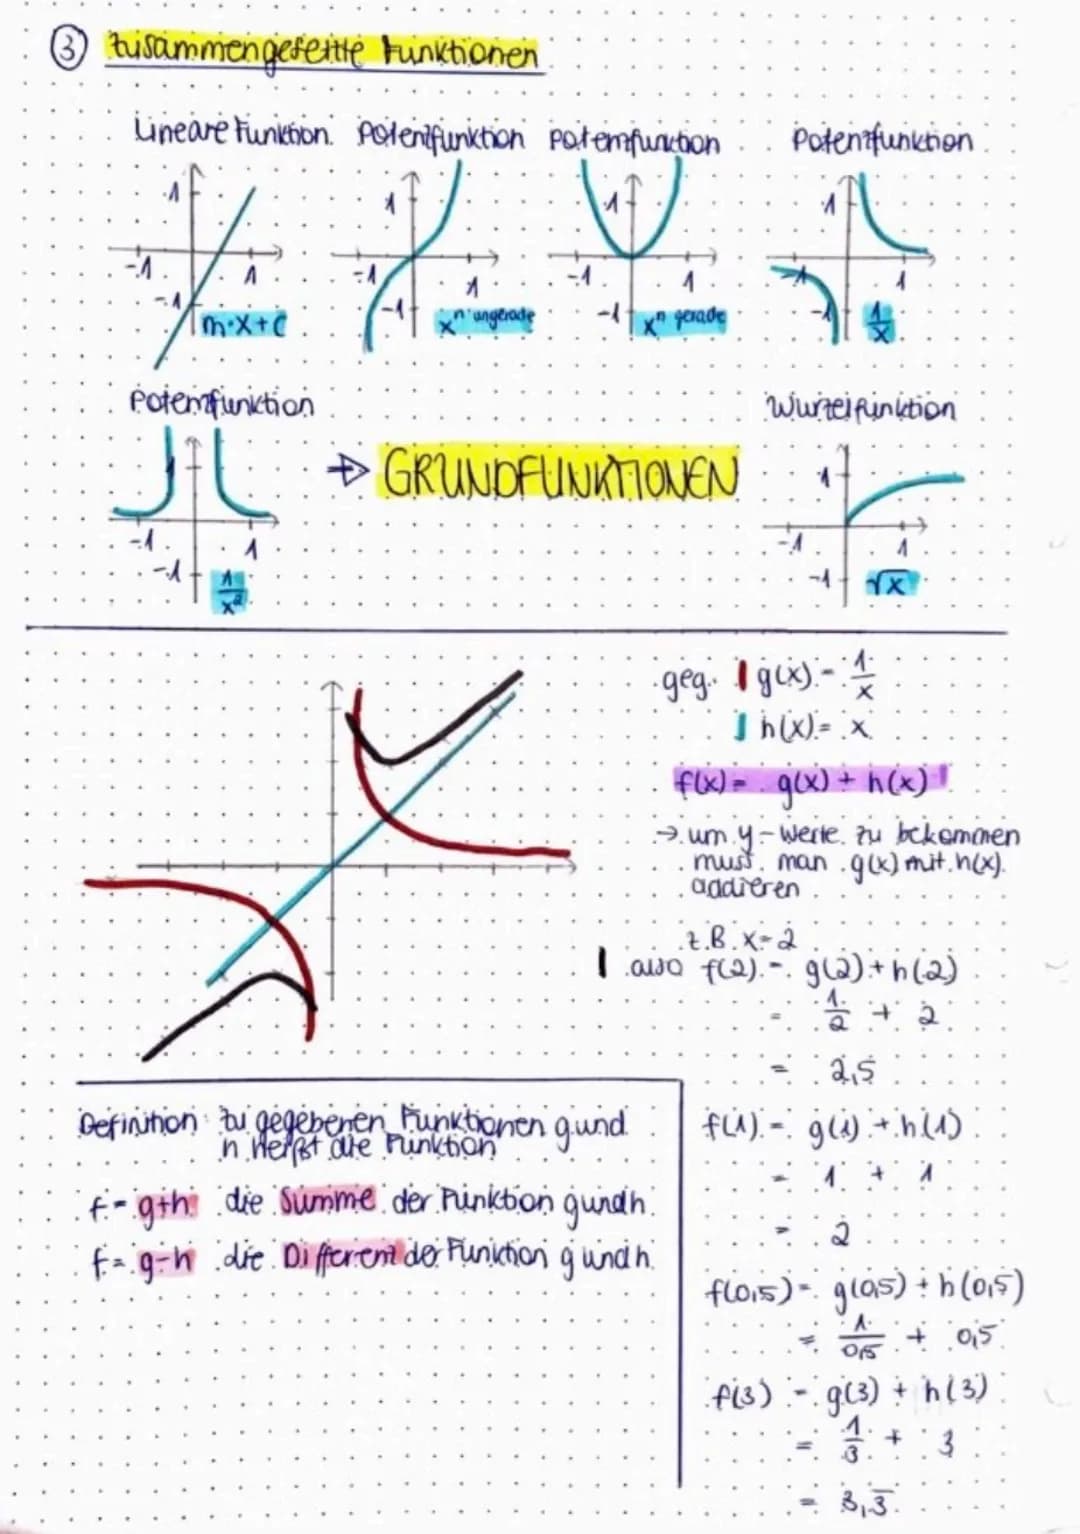 3 Zusammengesetzte Funktionen
Lineare Funktion. Potenzfunktion Potenzfunktion Potenzfunktion
1 1 1 1
-1 1 -1 1 -1 1 -1 1
-1 -1 -1 -1
m·x+c x^n ungerade x^n gerade 1/x
Potenzfunktion Wurzelfunktion
→ GRUNDFUNKTIONEN
1 1
-1 1 -1 1
-1 -1
1/x² √x
geg. g(x) = 1/x
h(x) = x
f(x) = g(x) + h(x)
→ um y-Werte zu bekommen
muss man g(x) mit h(x)
addieren
z.B. x=2
also f(2) = g(2) + h(2)
= 1/2 + 2
= 2,5
f(1) = g(1) + h(1)
= 1 + 1
= 2
f(0,5) = g(0,5) + h(0,5)
= 1/0,5 + 0,5
f(3) = g(3) + h(3)
= 1/3 + 3
= 3,3̅
Definition: zu gegebenen Funktionen g und
h heißt die Funktion
f = g+h die Summe der Funktion g und h.
f = g-h die Differenz der Funktion g und h.